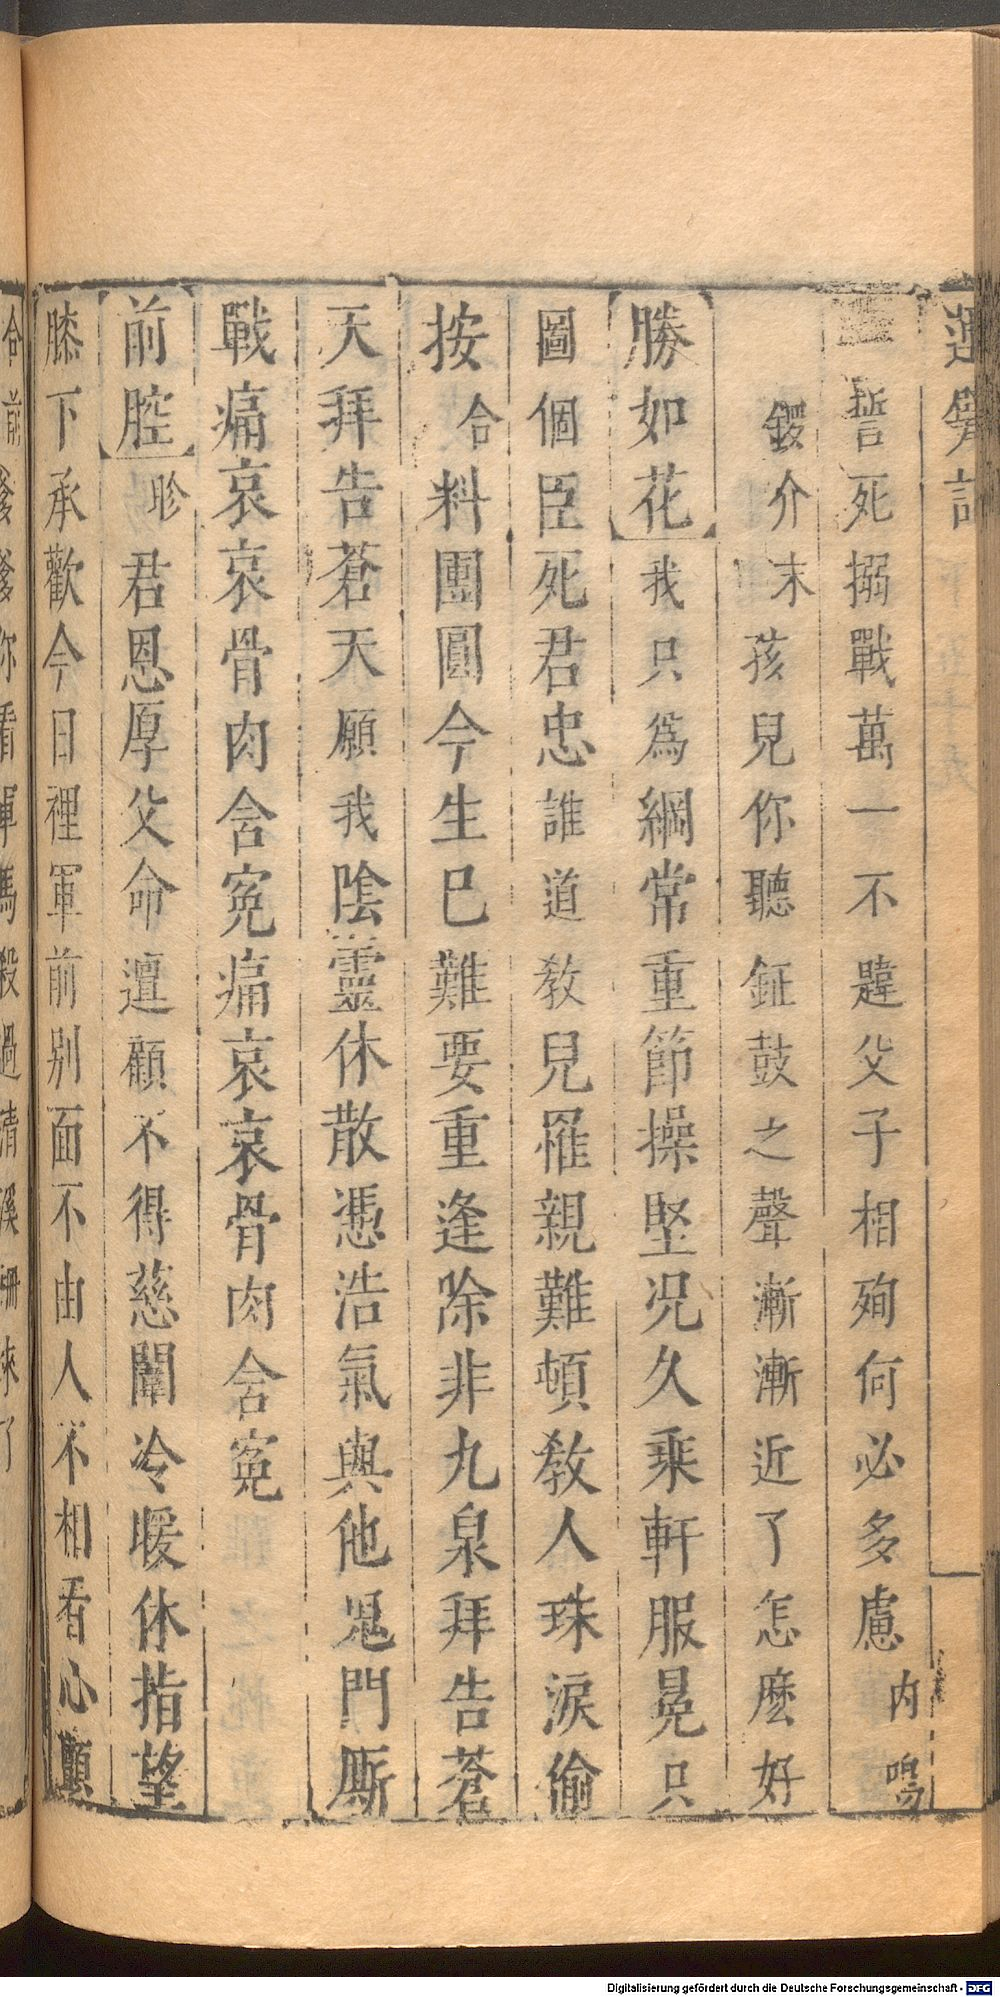 誓死搦戰萬一不韙父子相殉何必多慮內鳴
鑼介末孩兒你聽鉦鼓之聲漸漸近了怎麼好
勝如花我只為綱常重節操堅况久乘軒服冕只
圖個臣死君忠誰道教兒罹親難頓教人珠淚偷
按合料團圓今生巳難要重逢除非九泉拜告蒼
天拜告蒼天願我陰靈休散憑浩氣與他鬼門厮
戰痛哀哀骨肉含冤痛哀哀骨肉含冤
前腔昣君恩厚父命邅顧不得慈闈冷暖休指望
膝下承歡今日裡軍前别面不由人不相看心顫
合前爹爹你看軍馬殺過清溪柵來了
Digitalisierung gefördert durch die Deutsche Forschungsgemeinschaft - DFG